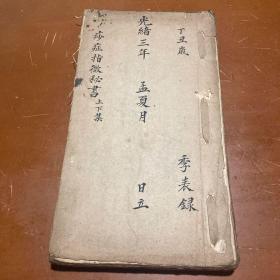 丁丑歲
季表錄
光緒三年 孟夏月 日立
痧症指微秘書上下集